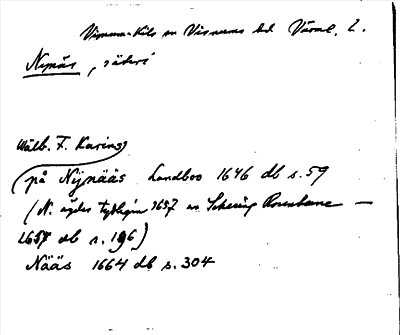 Visnums-Kils sn Visnums hd Värml. l.
Nynäs, säteri
Wälb. F. Karins
på Nijnääs Landboo 1646 db s. 59
(N. äges tydligen 1657 av Schering Rosenhane —
1657 db s. 196)
Nääs 1664 db s. 304